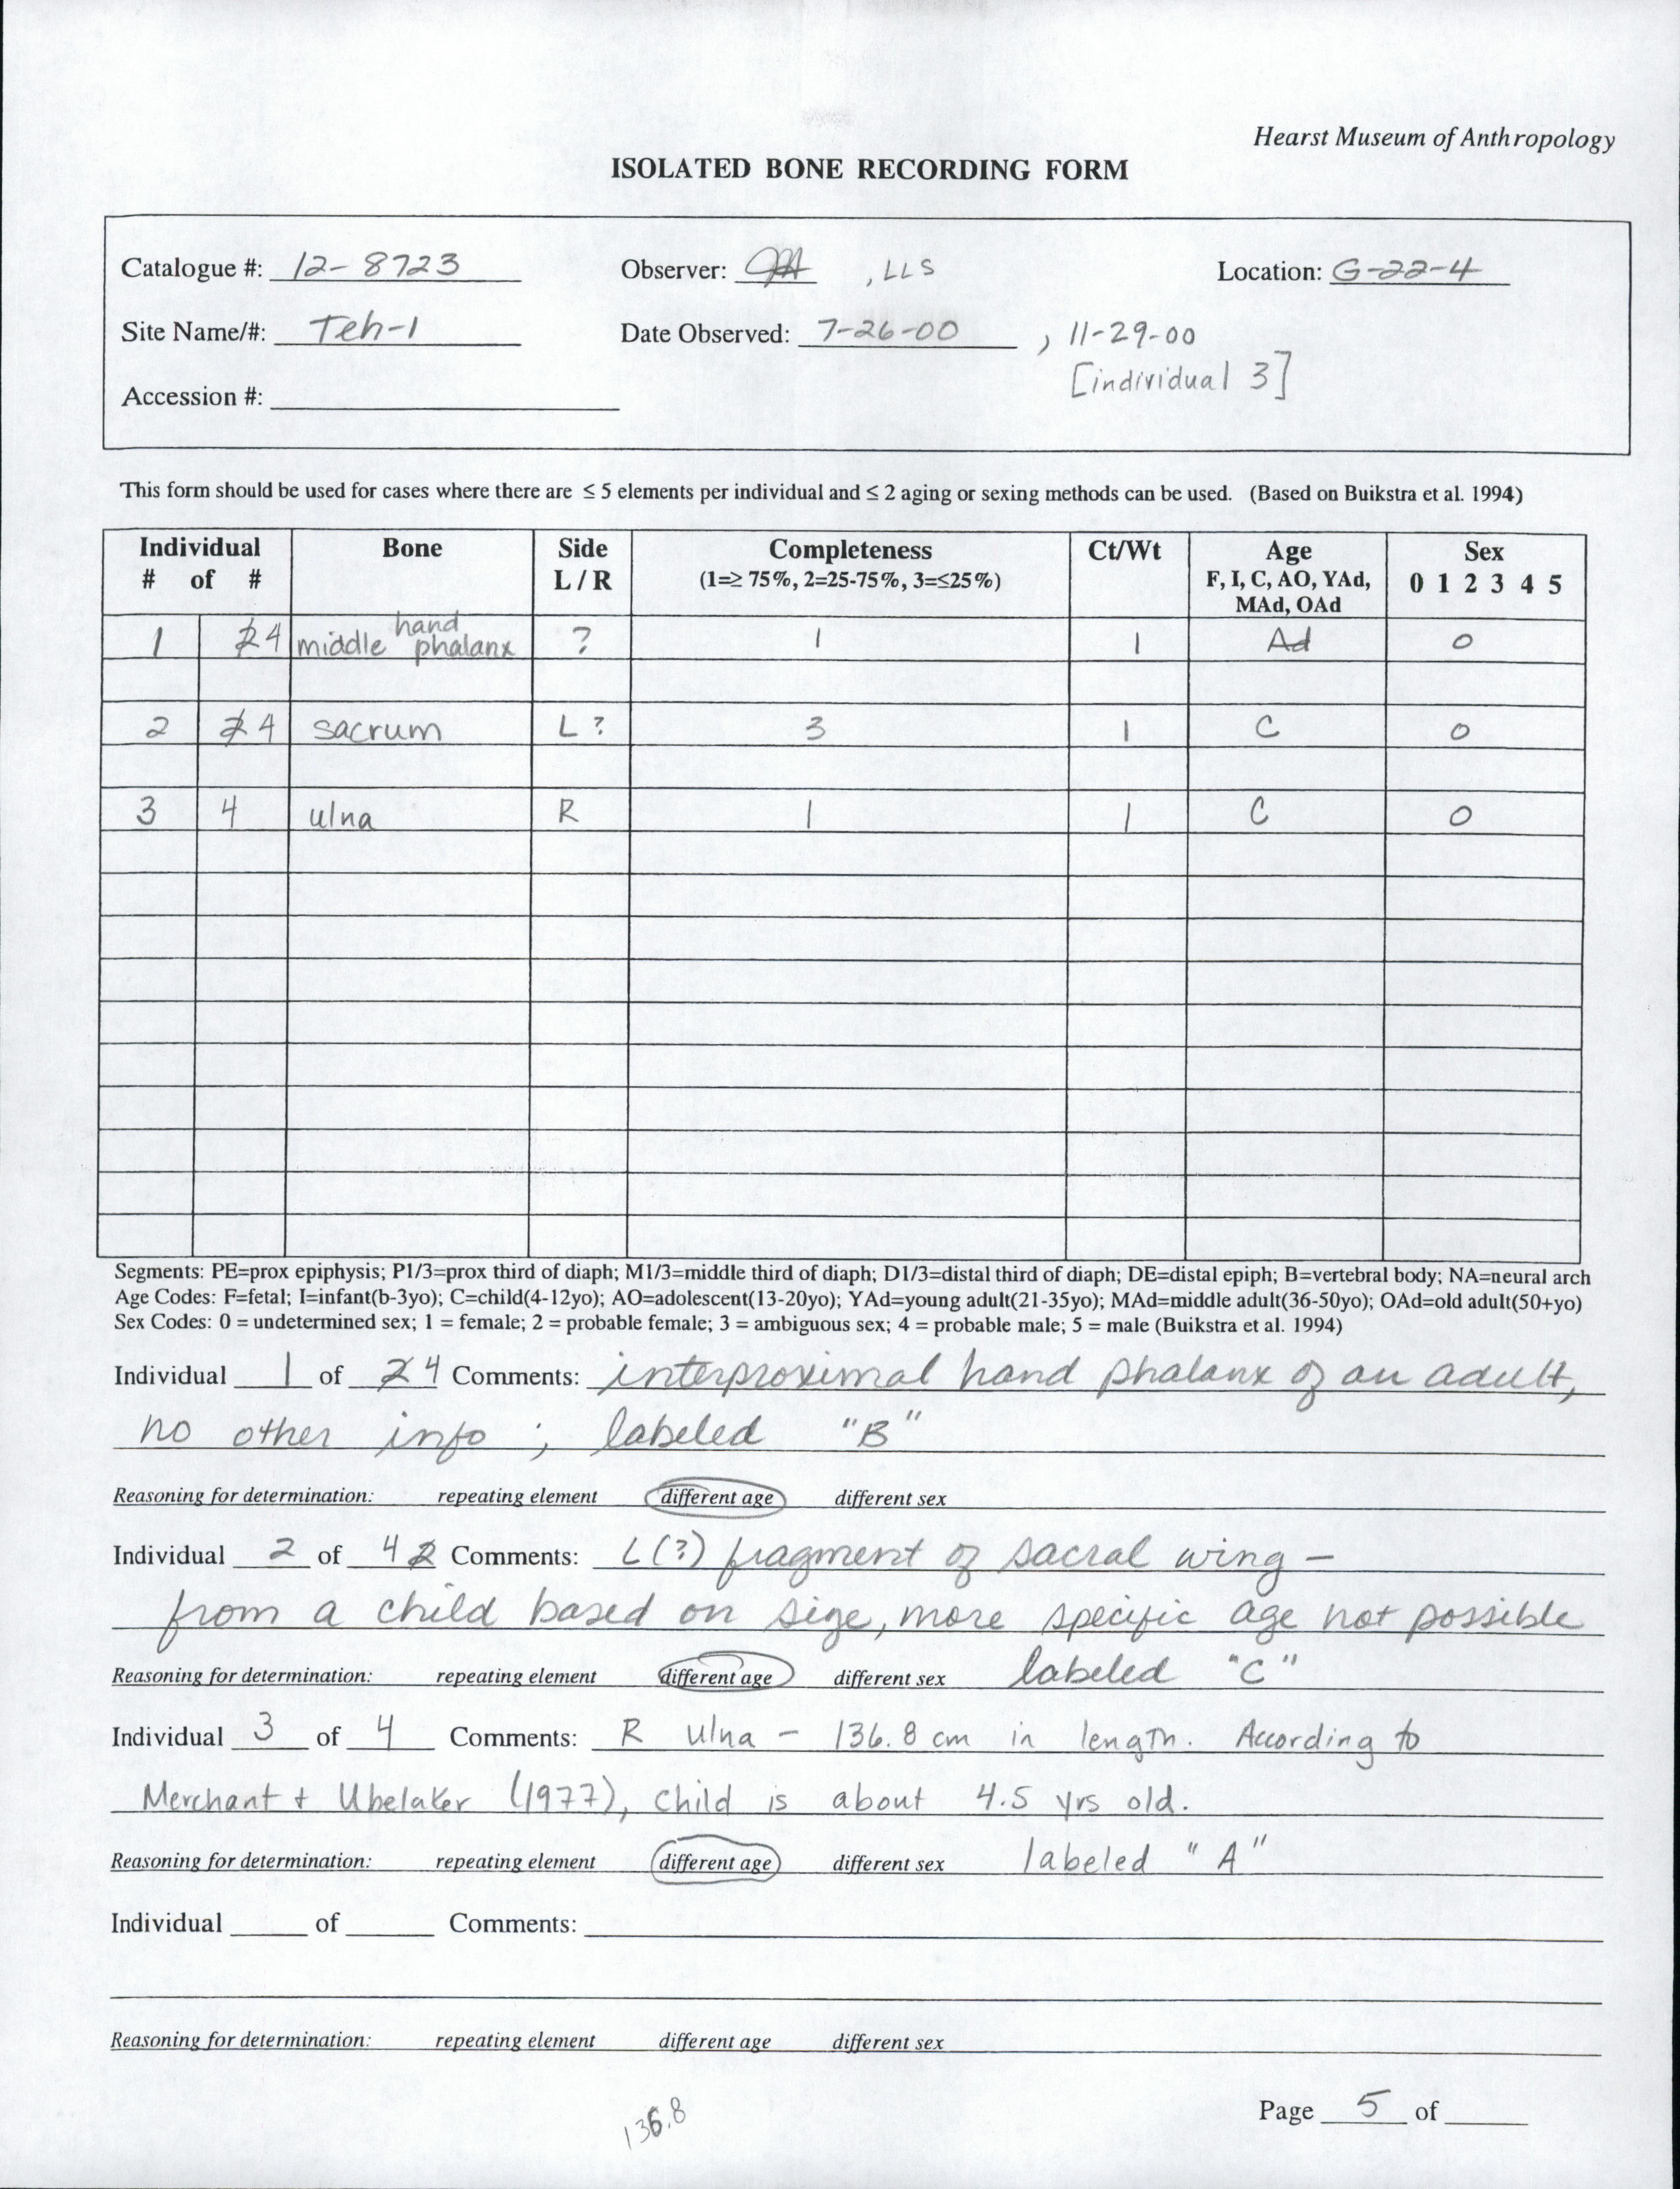 Hearst Museum of Anthropology
ISOLATED BONE RECORDING FORM
Catalogue #: 12-8723 Observer: , LLS Location: G-22-4
Site Name/#: Teh-1 Date Observed: 7-26-00 , 11-29-00
[individual 3]
Accession #:
This form should be used for cases where there are ≤ 5 elements per individual and ≤ 2 aging or sexing methods can be used. (Based on Buikstra et al. 1994)
Individual Bone Side Completeness Ct/Wt Age Sex
# of # L / R (1=≥ 75%, 2=25-75%, 3=≤25%) F, I, C, AO, YAd, 0 1 2 3 4 5
MAd, OAd
1 2 4 middle hand phalanx ? 1 1 Ad 0
2 2 4 sacrum L ? 3 1 C 0
3 4 ulna R 1 1 C 0
Segments: PE=prox epiphysis; P1/3=prox third of diaph; M1/3=middle third of diaph; D1/3=distal third of diaph; DE=distal epiph; B=vertebral body; NA=neural arch
Age Codes: F=fetal; I=infant(b-3yo); C=child(4-12yo); AO=adolescent(13-20yo); YAd=young adult(21-35yo); MAd=middle adult(36-50yo); OAd=old adult(50+yo)
Sex Codes: 0 = undetermined sex; 1 = female; 2 = probable female; 3 = ambiguous sex; 4 = probable male; 5 = male (Buikstra et al. 1994)
Individual 1 of 2 4 Comments: interproximal hand phalanx of an adult,
no other info ; labeled "B"
Reasoning for determination: repeating element different age different sex
Individual 2 of 4 2 Comments: L(?) fragment of sacral wing -
from a child based on size, more specific age not possible
Reasoning for determination: repeating element different age different sex labeled "C"
Individual 3 of 4 Comments: R Ulna - 136.8 cm in length. According to
Merchant + Ubelaker (1977), child is about 4.5 yrs old.
Reasoning for determination: repeating element different age different sex labeled "A"
Individual of Comments:
Reasoning for determination: repeating element different age different sex
136.8
Page 5 of